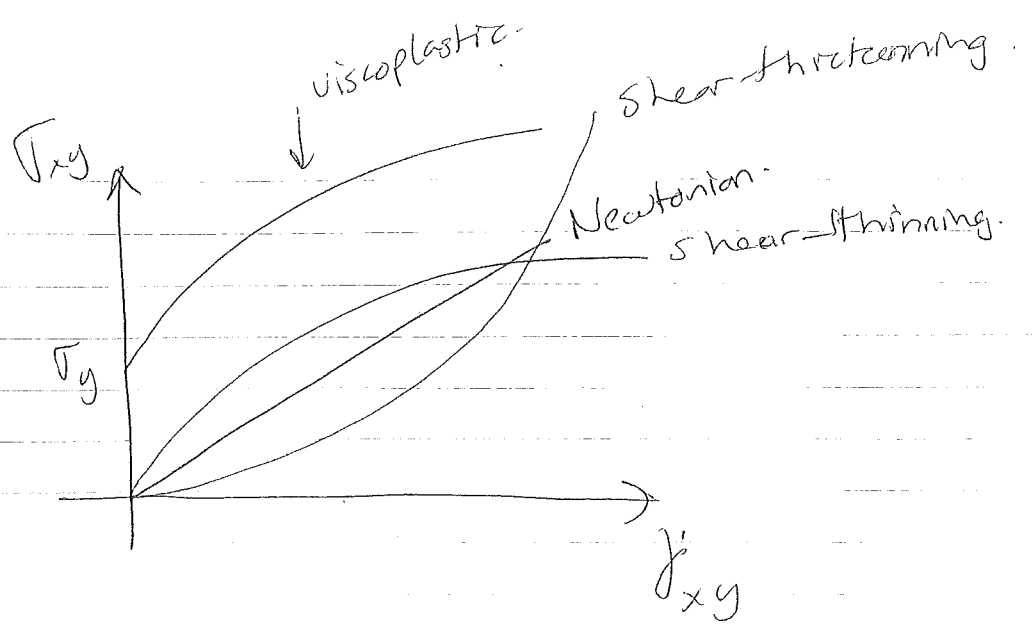 viscoplastic.
shear-thickenning.
σxy
Newtonian.
shear-thinning.
σy
γ̇xy